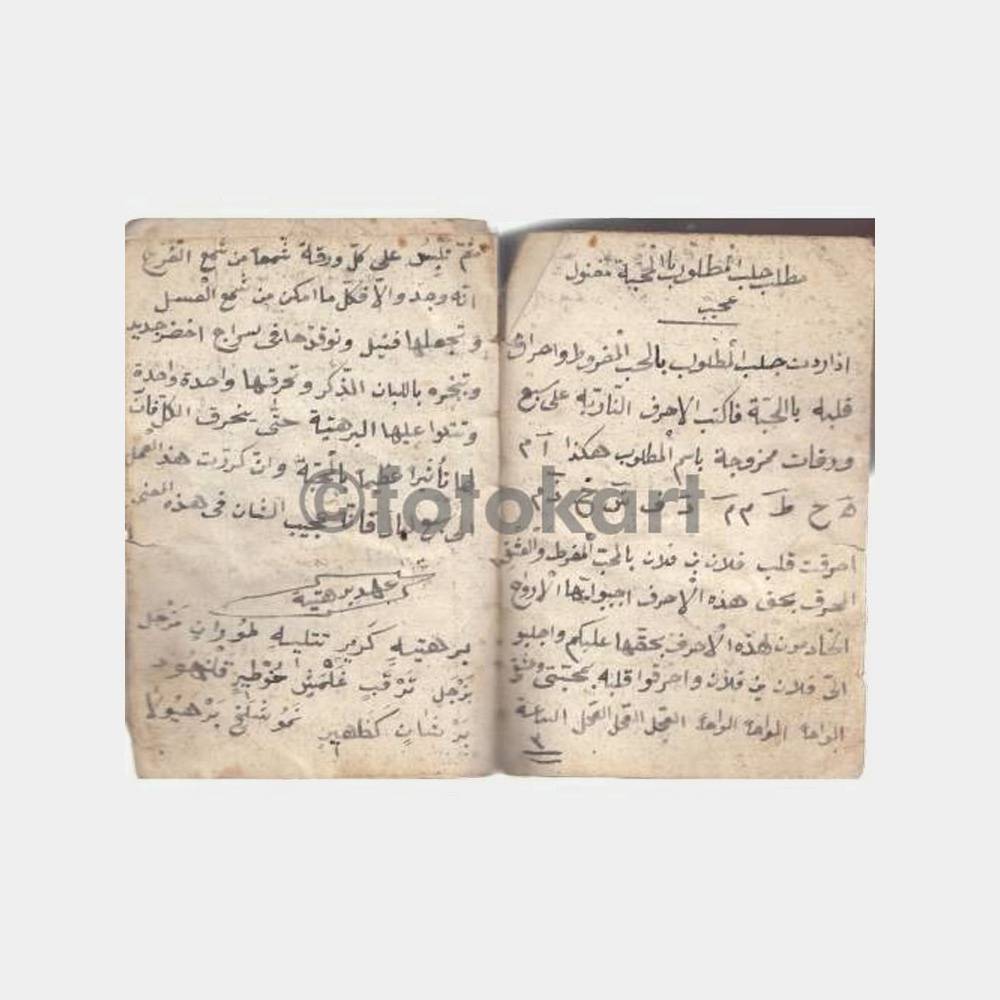 مطلب جلب المطلوب بالمحبّة مفتول
عجيب
اذا اردت جلب المطلوب بالحب المفروط واحراق
قلبه بالمحبّة فاكتب الاحرف الناريّة على سبع
ورقات ممزوجة باسم المطلوب هكذا آ م
ه ح ط م م
احرقت قلب فلان بن فلان بالحب المفرط والعشق
المحرق بحق هذه الاحرف اجيبوا ايّها الارواح
الخادمون لهذه الاحرف بحقّها عليكم واجلبو
الىّ فلان بن فلان واحرقوا قلبه بمحبتى وعشقى
الواحا الواحا الواحا العجل العجل العجل الساعة
٣
ثمّ تلبس على كلّ ورقة شمعا من شمع
انه وجد والاّ فكلّ ما امكن من شمع العسل
و تجعلها فتيل وتوقدها فى سراج اخضر جديد
وتبخره باللبان الذّكر وتحرقها واحدة واحدة
وتتلوا عليها البرهتية حتّى ينحرق الكلّ فانّ
لها تأثيرا عظيما بالمحبّة وان كررت هذا العمل
عجيب الشان فى هذه المعنى
عهد برهتية
برهتيه كرير تتليه طوران مزجل
بزجل ترقب برهش غلمش خوطير قلنهود
برشان كظهير نموشلخ برهيولا
©fotokart